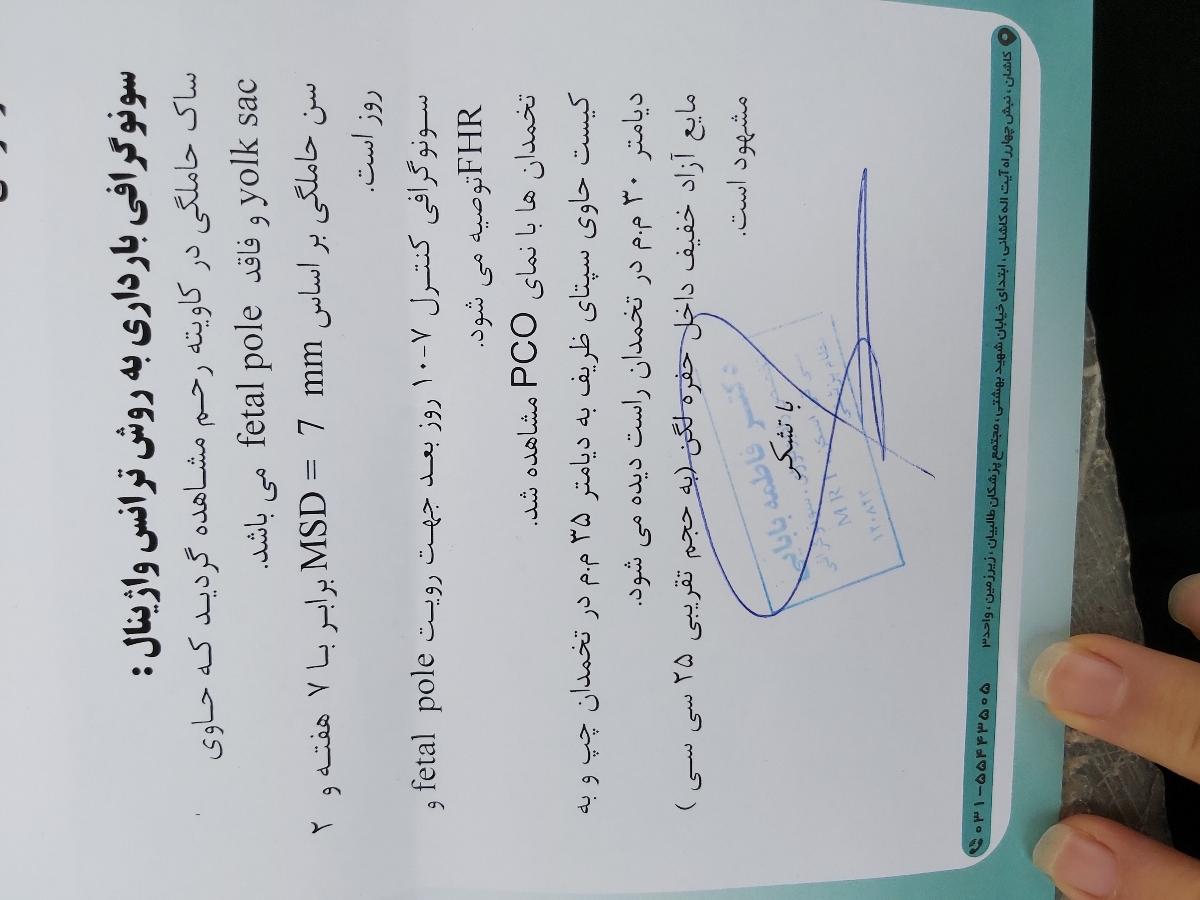 سونوگرافی بارداری به روش ترانس واژینال :
ساک حاملگی در کاویته رحم مشاهده گردید که حاوی
yolk sac و فاقد fetal pole می باشد.
سن حاملگی بر اساس MSD = 7 mm برابر با ۷ هفته و ۲
روز است.
سونوگرافی کنترل ۷-۱۰ روز بعد جهت رویت fetal pole و
FHRتوصیه می شود.
تخمدان ها با نمای PCO مشاهده شد.
کیست حاوی سپتای ظریف به دیامتر ۳۵ م.م در تخمدان چپ و به
دیامتر ۳۰ م.م در تخمدان راست دیده می شود.
مایع آزاد خفیف داخل حفره لگن (به حجم تقریبی ۲۵ سی سی )
مشهود است.
با تشکر
دکتر فاطمه بابائی
MRI
کاشان، نبش چهارراه آیت اله کاشانی، ابتدای خیابان شهید بهشتی، مجتمع پزشکان طالبیان، زیرزمین، واحد۳
۰۳۱-۵۵۴۴۳۵۰۵